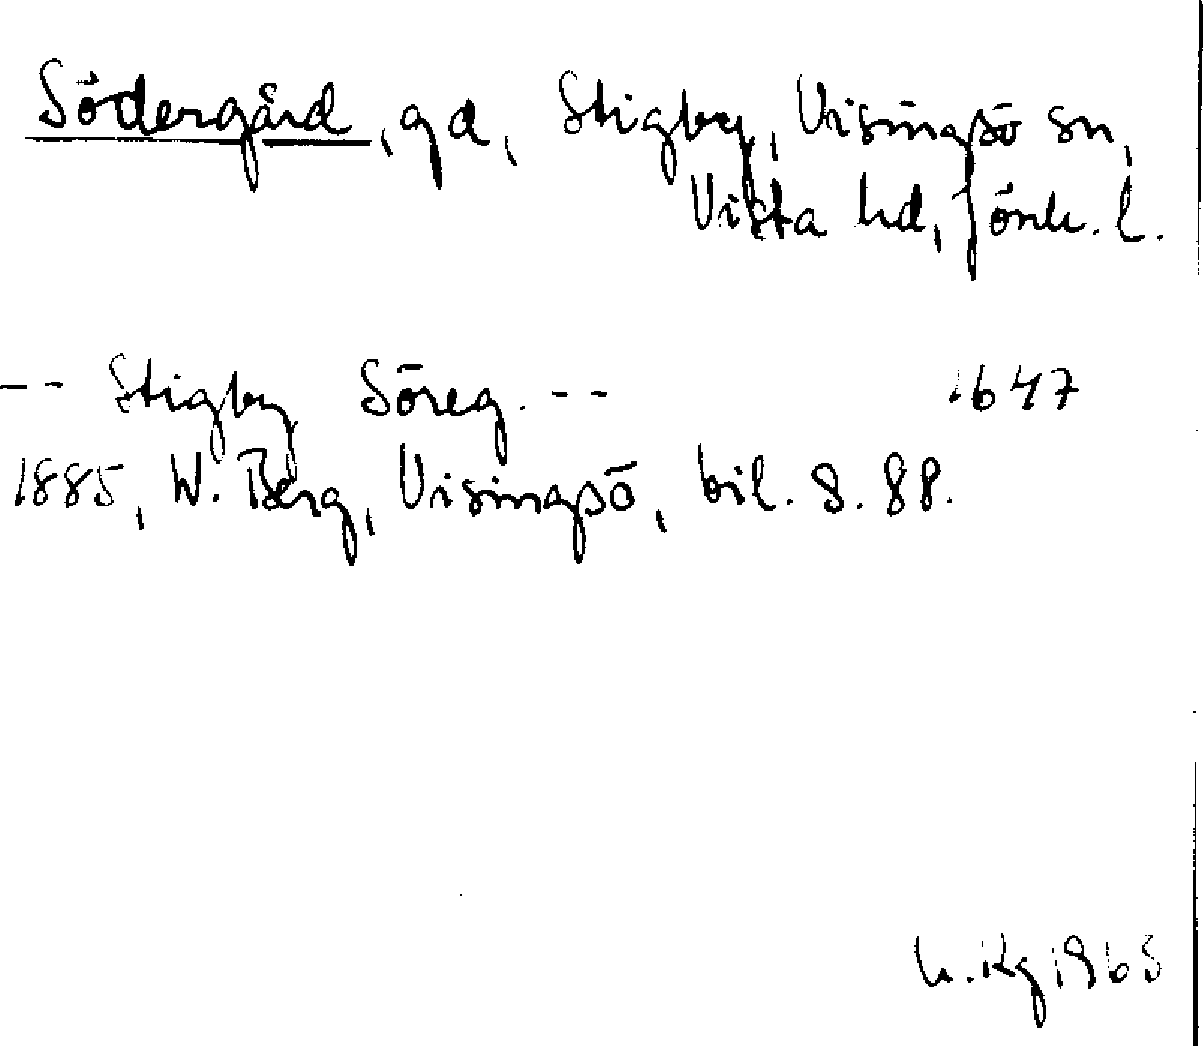 Södergård, gd, Stigby, Visingsö sn,
Vista hd, Jönk. l.
-- Stigby Söreg. -- 1647
1885, W. Berg, Visingsö, bil. s. 88.
1965